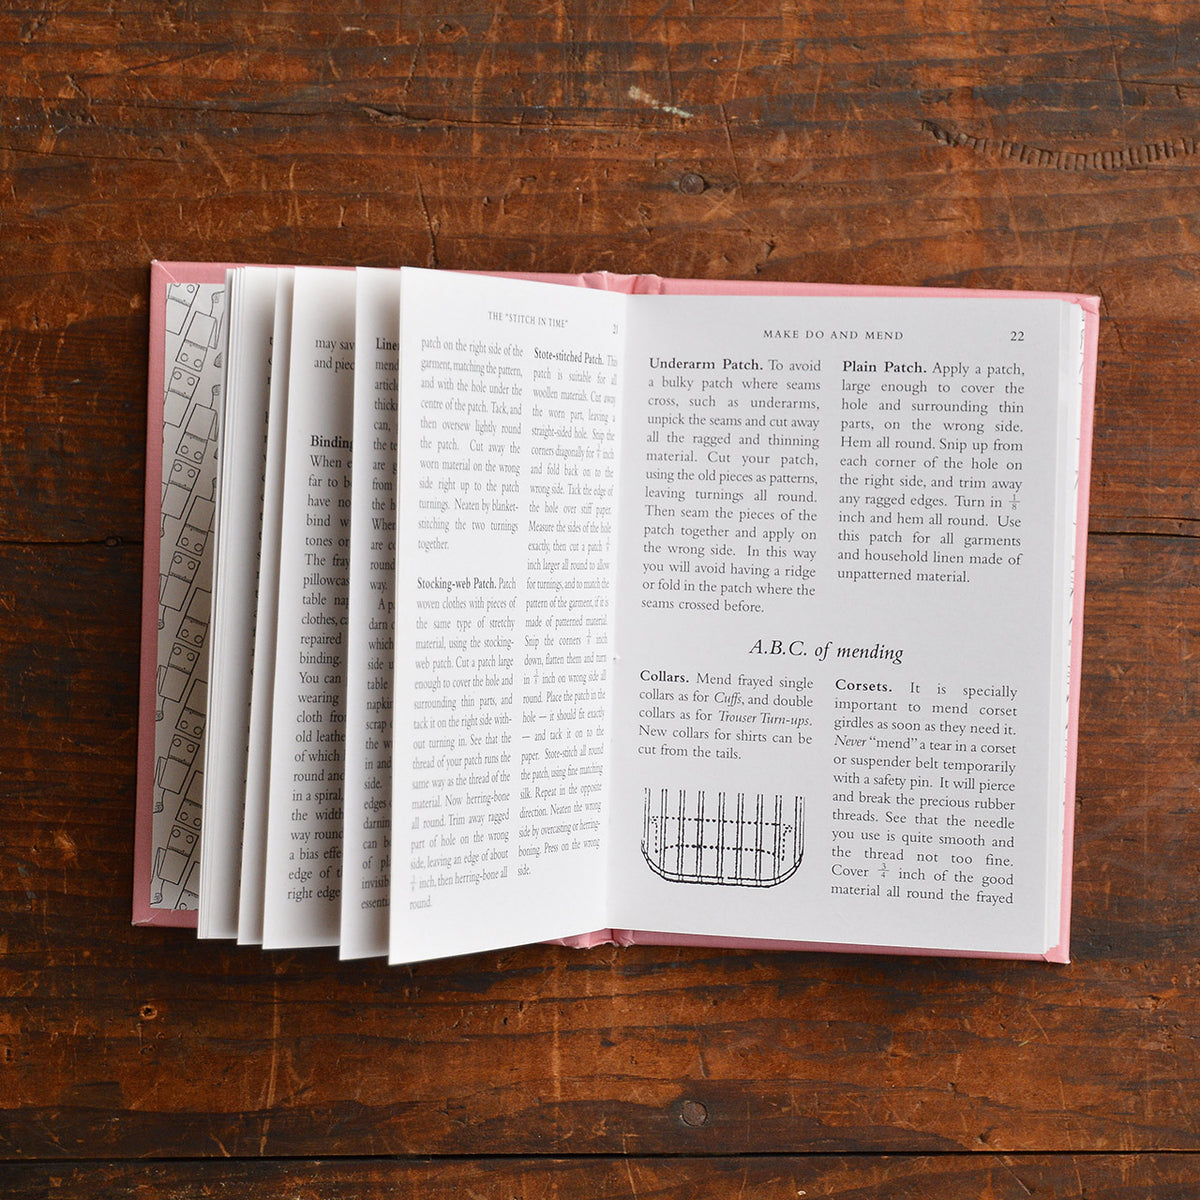 may sav
and piec
Binding
When e
far to b
have no
bind w
tones or
The fray
pillowcas
table nap
clothes, ca
repaired
binding.
You can
wearing
cloth fro
old leathe
of which
round and
in a spiral,
the width
way round
a bias effe
edge of t
right edge
Line
mend
article
thick
can,
the te
are g
from
the h
When
are co
round
way.
A p
darn c
which
side u
table
napki
scrap c
the w
in and
side.
edges
darnin
can b
of pl
invisib
essenti
THE "STITCH IN TIME"
21
patch on the right side of the
garment, matching the pattern,
and with the hole under the
centre of the patch. Tack, and
then oversew lightly round
the patch. Cut away the
worn material on the wrong
side right up to the patch
turnings. Neaten by blanket-
stitching the two turnings
together.
Stocking-web Patch. Patch
woven clothes with pieces of
the same type of stretchy
material, using the stocking-
web patch. Cut a patch large
enough to cover the hole and
surrounding thin parts, and
tack it on the right side with-
out turning in. See that the
thread of your patch runs the
same way as the thread of the
material. Now herring-bone
all round. Trim away ragged
part of hole on the wrong
side, leaving an edge of about
inch, then herring-bone all
round.
Stote-stitched Patch. This
patch is suitable for all
woollen materials. Cut away
the worn part, leaving a
straight-sided hole. Snip the
corners diagonally for inch
and fold back on to the
wrong side. Tack the edge of
the hole over stiff paper.
Measure the sides of the hole
exactly, then cut a patch
inch larger all round to allow
for turnings, and to match the
pattern of the garment, if it is
made of patterned material.
Snip the corners inch
down, flatten them and turn
in inch on wrong side all
round. Place the patch in the
hole — it should fit exactly
— and tack it on to the
paper. Stote-stitch all round
the patch, using fine matching
silk. Repeat in the opposite
direction. Neaten the wrong
side by overcasting or herring-
boning. Press on the wrong
side.
MAKE DO AND MEND
22
Underarm Patch. To avoid
a bulky patch where seams
cross, such as underarms,
unpick the seams and cut away
all the ragged and thinning
material. Cut your patch,
using the old pieces as patterns,
leaving turnings all round.
Then seam the pieces of the
patch together and apply on
the wrong side. In this way
you will avoid having a ridge
or fold in the patch where the
seams crossed before.
Plain Patch. Apply a patch,
large enough to cover the
hole and surrounding thin
parts, on the wrong side.
Hem all round. Snip up from
each corner of the hole on
the right side, and trim away
any ragged edges. Turn in 1/8
inch and hem all round. Use
this patch for all garments
and household linen made of
unpatterned material.
A.B.C. of mending
Collars. Mend frayed single
collars as for Cuffs, and double
collars as for Trouser Turn-ups.
New collars for shirts can be
cut from the tails.
Corsets. It is specially
important to mend corset
girdles as soon as they need it.
Never "mend" a tear in a corset
or suspender belt temporarily
with a safety pin. It will pierce
and break the precious rubber
threads. See that the needle
you use is quite smooth and
the thread not too fine.
Cover 3/4 inch of the good
material all round the frayed